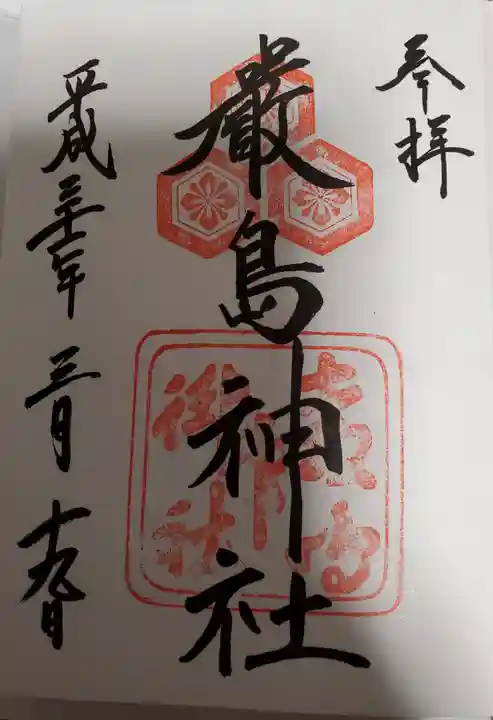 奉拝
厳島神社
平成三十一年 三月 十九日